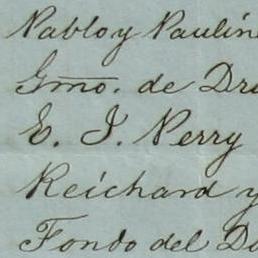 Pablo y Paulin
Gmo. de Dra
E. J. Perry
Reichard y
Fondo del Do